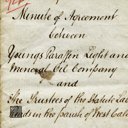 Minute of Agreement
between
Youngs Paraffin Light and
Mineral Oil Company
and
The Trustees of the Statute La
in the parish of West Cal